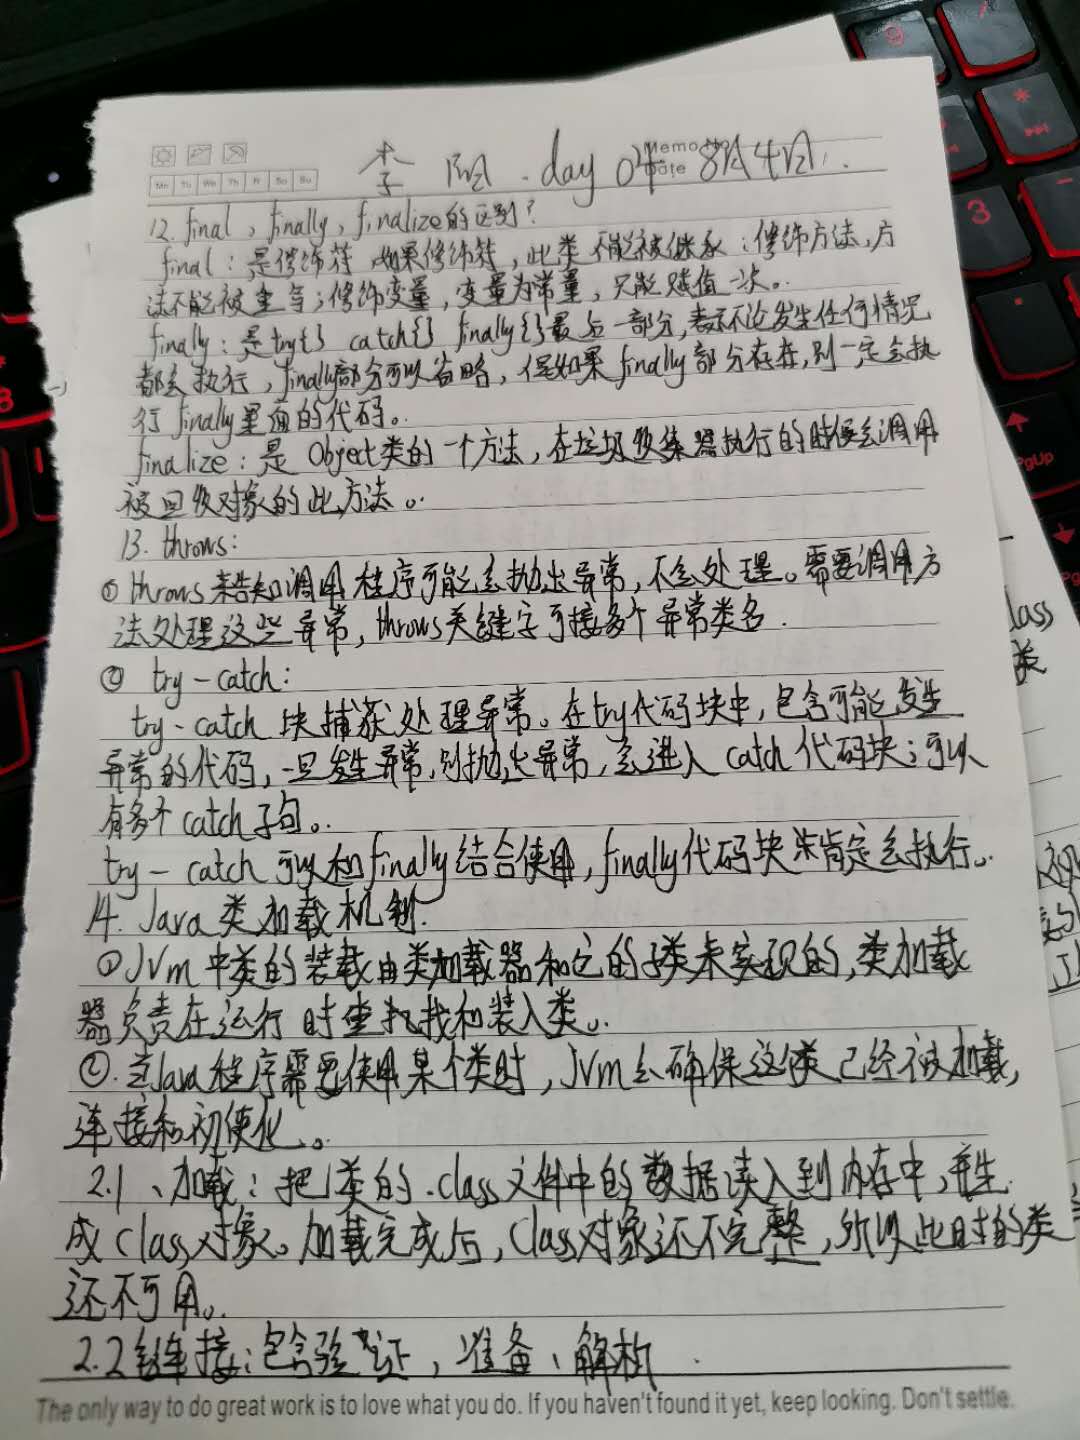 Memo
Date
Mo Tu We Th Fr Sa Su
李 阳 . day 04 8月4日.
12. final , finally , finalize的区别？
final : 是修饰符 如果修饰符，此类不能被继承；修饰方法，方
法不能被重写；修饰变量，变量为常量，只能赋值一次。
finally : 是try{} catch{} finally{}最后一部分，表示不论发生任何情况
都会执行，finally部分可以省略，但如果finally部分存在，则一定会执
行finally里面的代码。
finalize : 是 Object类的一个方法，在垃圾收集器执行的时候会调用
被回收对象的此方法。
13. throws:
① throws 来告知调用程序可能会抛出异常，不会处理。需要调用方
法处理这些异常，throws关键字可接多个异常类名.
② try-catch:
try-catch 块捕获处理异常。在try代码块中，包含可能发生
异常的代码，一旦发生异常，则抛出异常，会进入 catch 代码块；可以
有多个catch子句。
try-catch 可以和finally结合使用，finally代码块中肯定会执行。
14. Java 类加载机制.
① JVm 中类的装载由类加载器和它的子类来实现的，类加载
器负责在运行时查找和装入类。
②. 当Java程序需要使用某个类时，JVm会确保这个类已经被加载，
连接和初使化。
2.1、加载：把类的.class文件中的数据读入到内存中，并生
成class对象。加载完成后，class对象还不完整，所以此时的类
还不可用。
2.2 链连接：包含验证，准备、解析.
The only way to do great work is to love what you do. If you haven't found it yet, keep looking. Don't settle.
9
*
3
8
PgUp
class
类